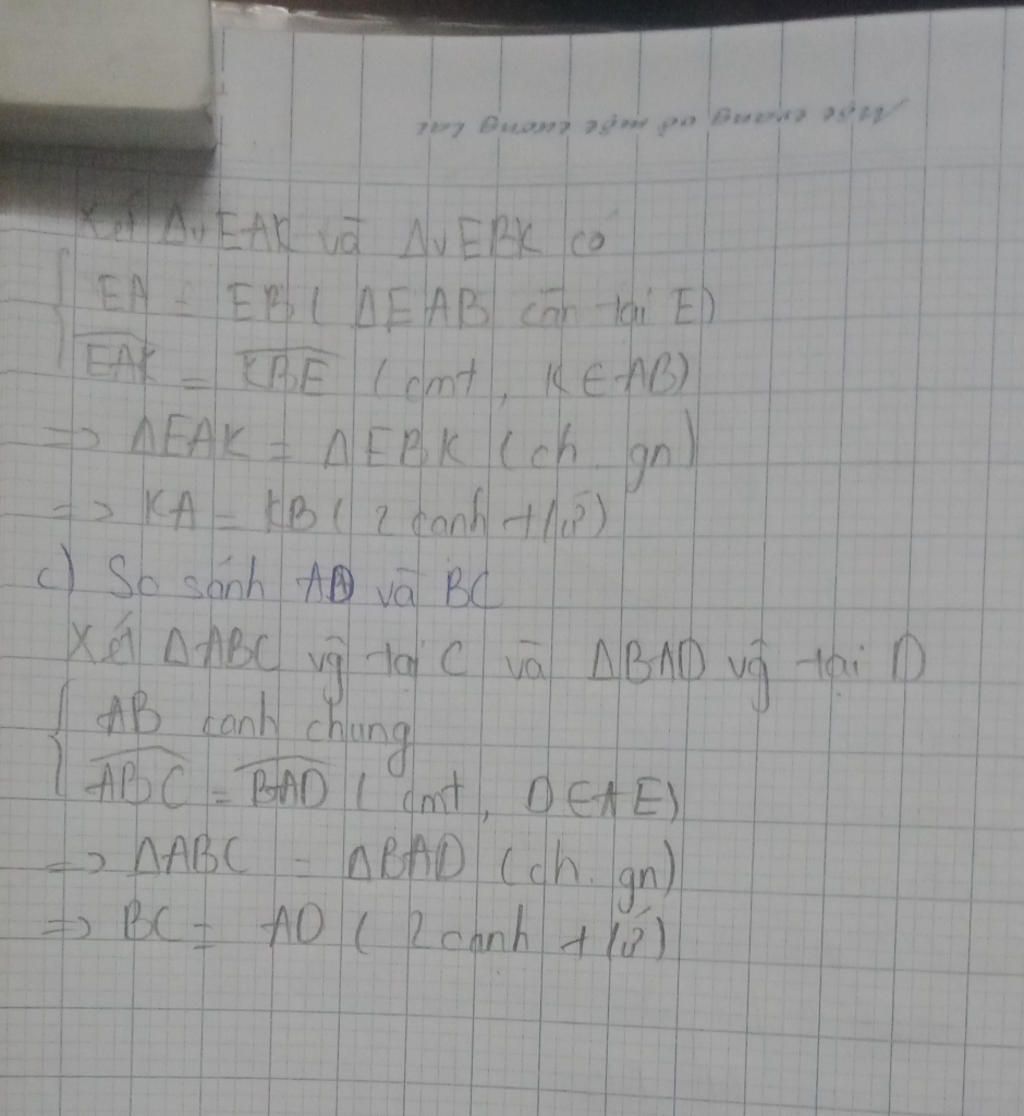 Một trang vở một tương lai
Xét Δv EAK và Δv EBK có
EA = EB ( ΔEAB cân tại E)
EAK = KBE (cmt, K ∈ AB)
=> ΔEAK = ΔEBK (ch. gn)
=> KA = KB ( 2 cạnh tứ)
c) So sánh AD và BC
Xét ΔABC vg tại C và ΔBAD vg tại D
AB cạnh chung
ABC = BAD ( cmt, D ∈ AE)
=> ΔABC = ΔBAD (ch. gn)
=> BC = AD ( 2 cạnh tứ)